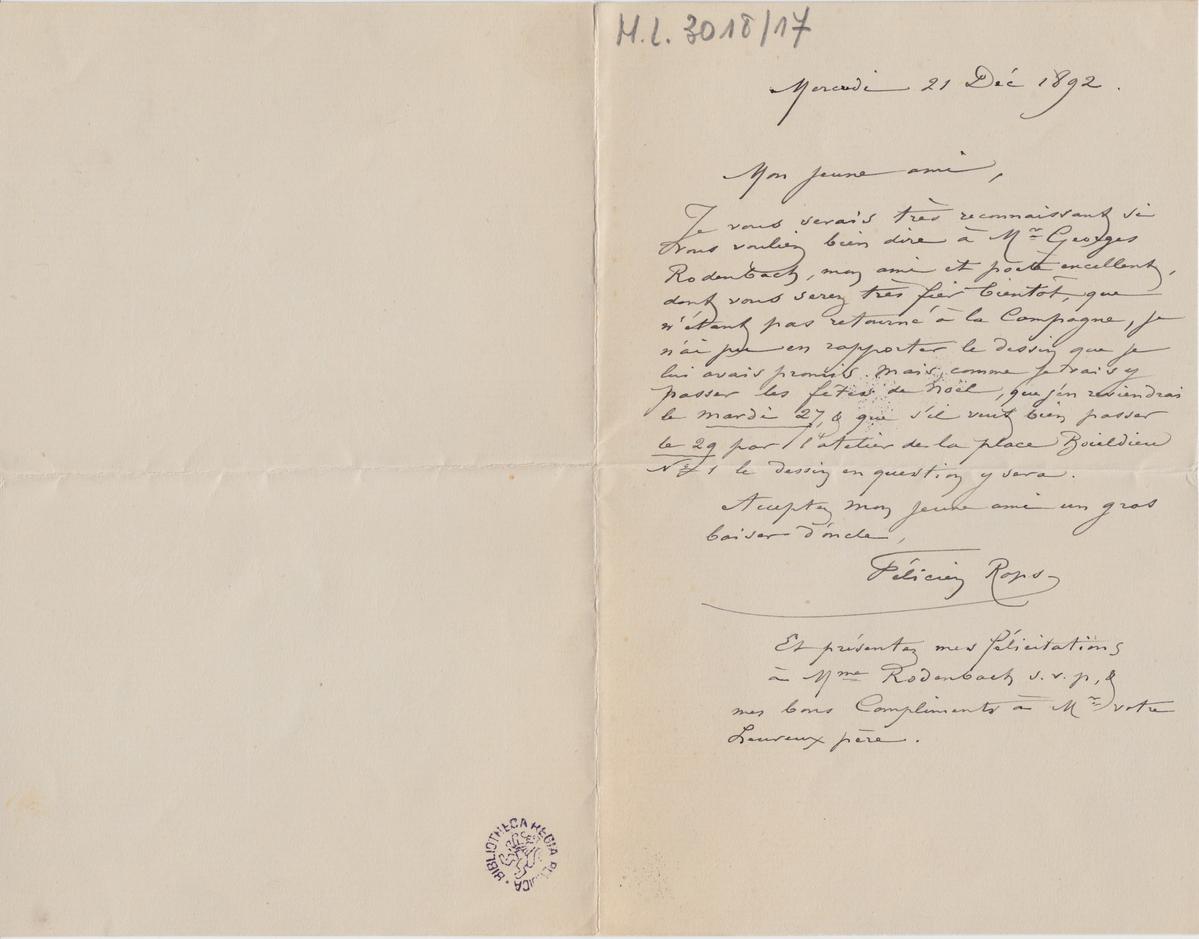 M.L. 3018/17
Mercredi 21 Déc 1892.
Mon jeune ami,
Je vous serais très reconnaissant si
vous vouliez bien dire à Mr Georges
Rodenbach, mon ami et poète excellent,
dont vous serez très fier bientôt, que
n'étant pas retourné à la Campagne, je
n'ai pu en rapporter le dessin que je
lui avais promis. Mais, comme je vais y
passer les fêtes de Noël, que j'en reviendrai
le mardi 27, & que s'il veut bien passer
le 29 par l'atelier de la place Boieldieu
No 1 le dessin en question y sera.
Acceptez mon jeune ami un gros
baiser d'oncle,
Félicien Rops
Et présentez mes félicitations
à Mme Rodenbach s.v.p, &
mes bons Compliments à Mr votre
heureux père.
BIBLIOTHECA REGIA BELGICA